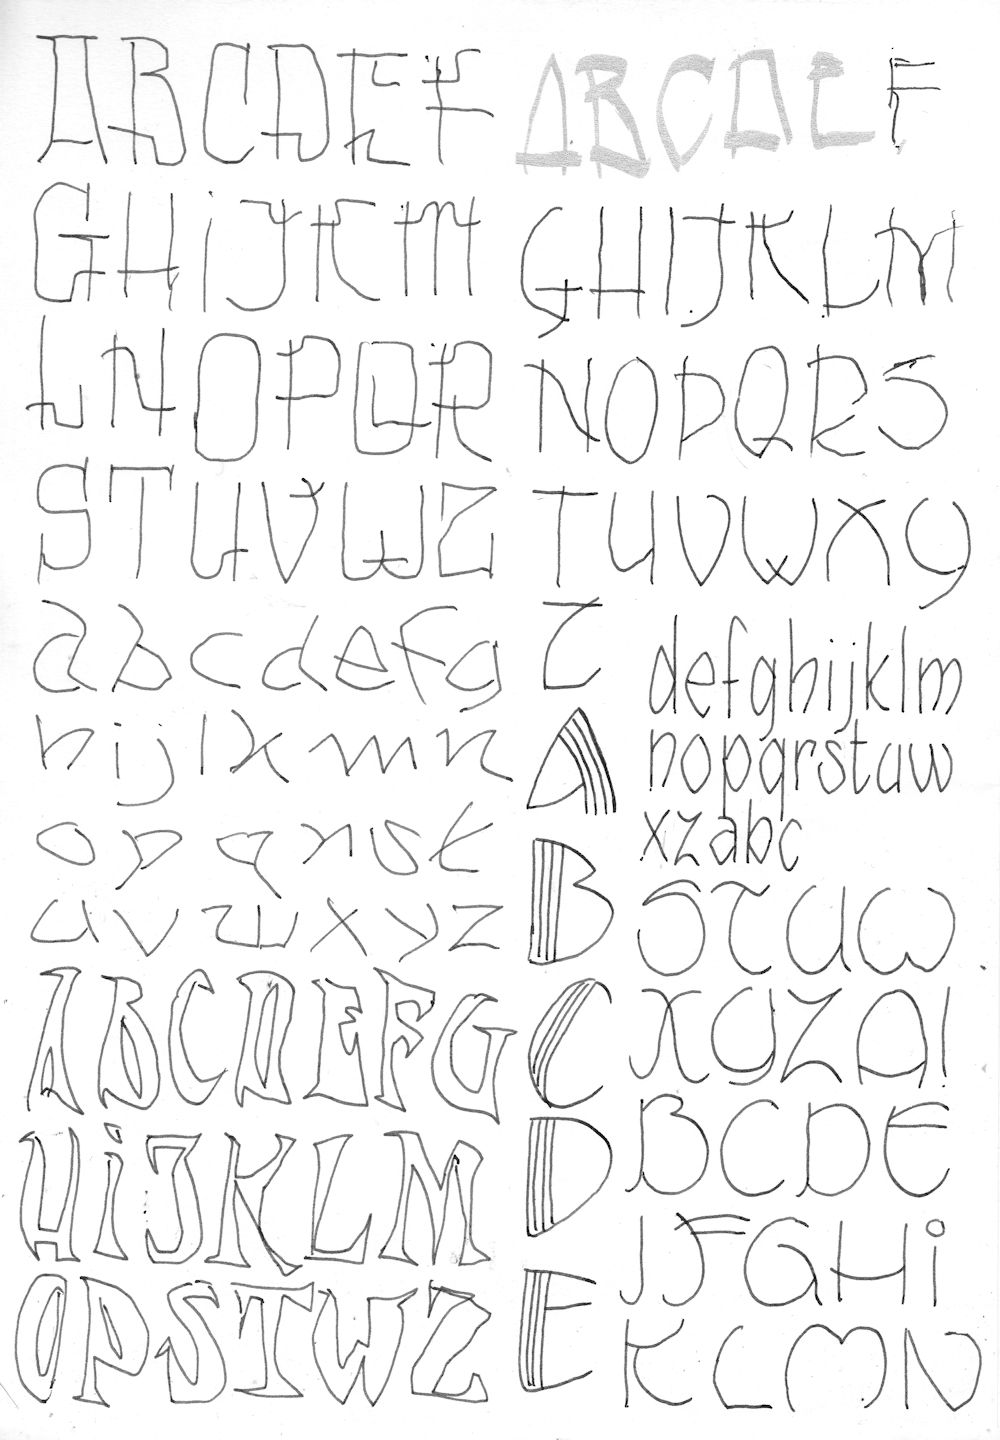 ABCDEF
GHiJKM
LNOPQR
STUVWZ
abcdefg
hijlkmn
opqrst
uvwxyz
ABCDEFG
HiJKLM
OPSTWZ
ABCDE
F
GHIJKLM
NOPQRS
TUVWXY
Z
defghijklm
nopqrstuw
xzabc
A
B
C
D
E
STUW
XYZA!
BCDE
IJFGHi
KLMN